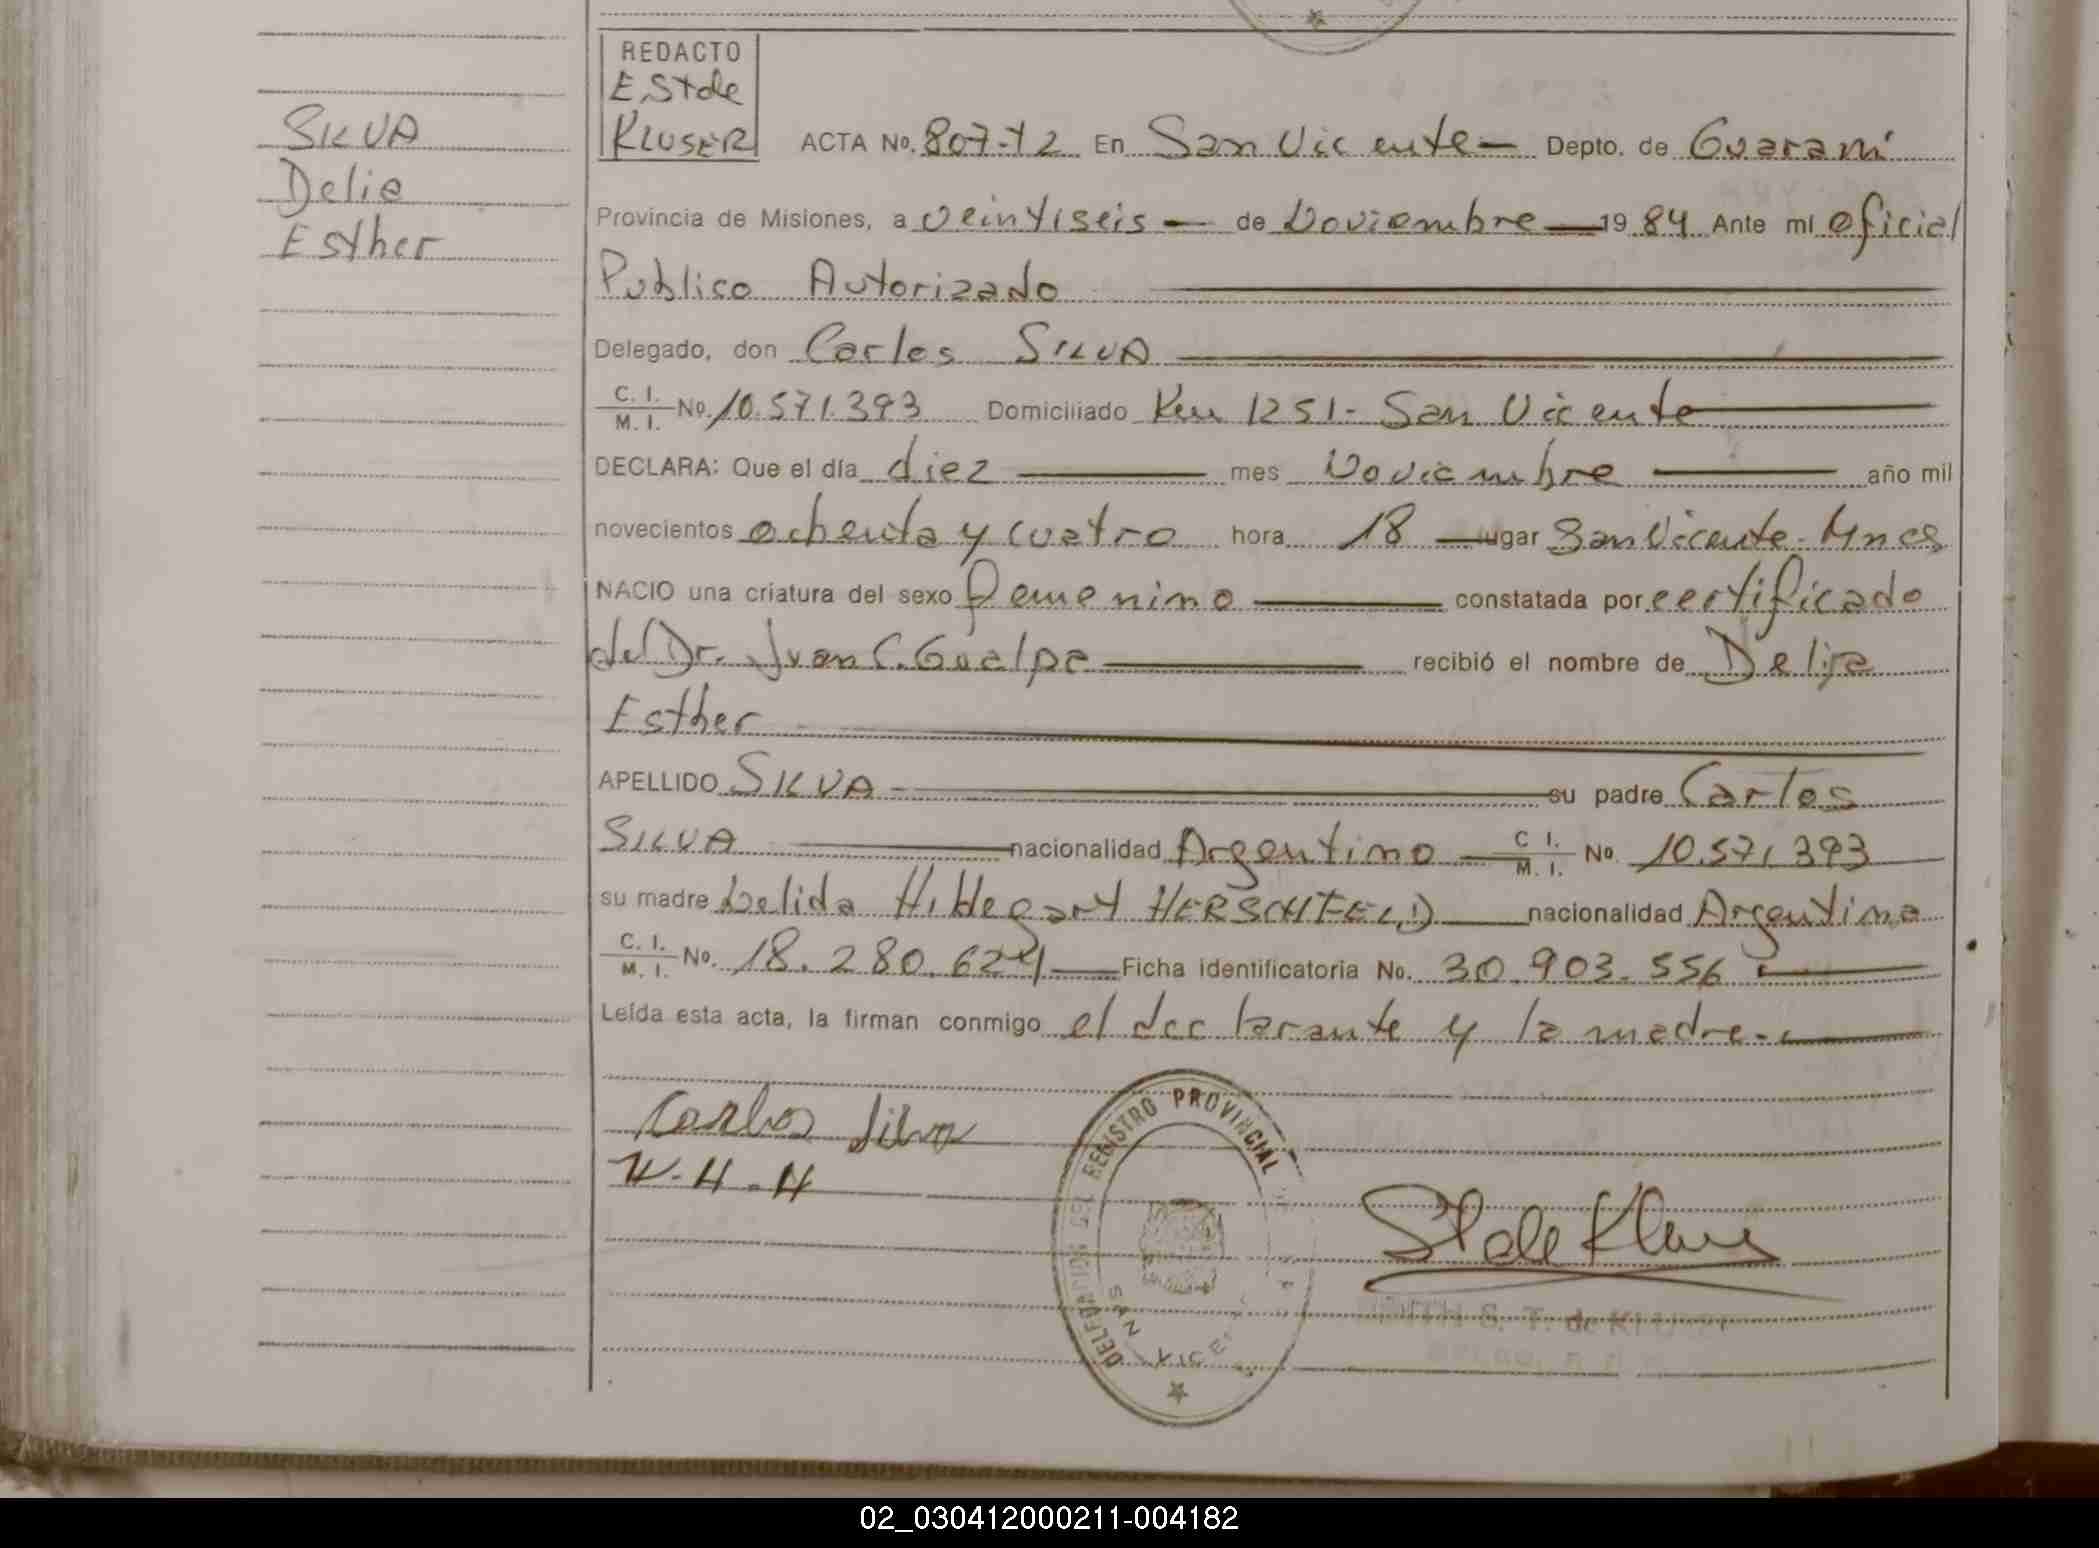 REDACTO
E. St de
KLUSER
SILVA
Delie
Esther
ACTA No. 807-T2 En San Vicente — Depto. de Guaraní
Provincia de Misiones, a veintiseis — de Noviembre — 19 84 Ante mí oficial
Publico Autorizado
Delegado, don Carlos SILVA
C. I. / M. I. No. 10.571.393 Domiciliado Km 1251 - San Vicente
DECLARA: Que el día diez — mes Noviembre — año mil
novecientos ochenta y cuatro hora 18 — lugar San Vicente - Mnes
NACIO una criatura del sexo femenino — constatada por certificado
del Dr. Juan C. Gualpe — recibió el nombre de Delia
Esther
APELLIDO SILVA — su padre Carlos
SILVA — nacionalidad Argentino — C I. / M. I. No. 10.571.393
su madre Delida Hildegart HERSCHFELD — nacionalidad Argentina
C. I. / M. I. No. 18.280.624 — Ficha identificatoria No. 30.903.556
Leída esta acta, la firman conmigo el declarante y la madre.-
Carlos Silva
H.H
DELEGACION DEL REGISTRO PROVINCIAL
SAN VICE
St de Kluser
S. T. de KLU
02_030412000211-004182